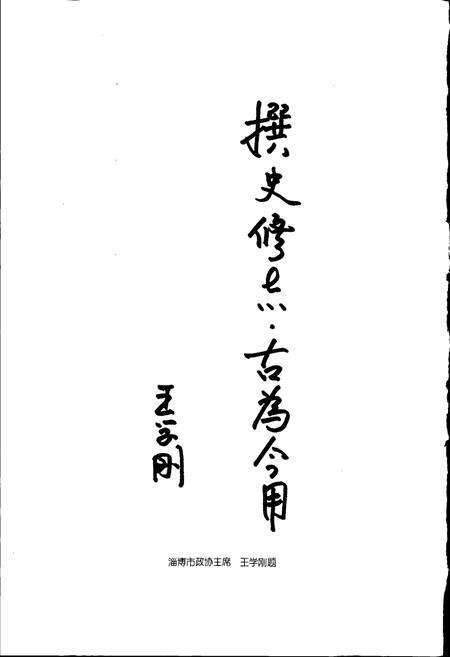 撰史修志·古為今用
王学刚
淄博市政协主席　王学刚题